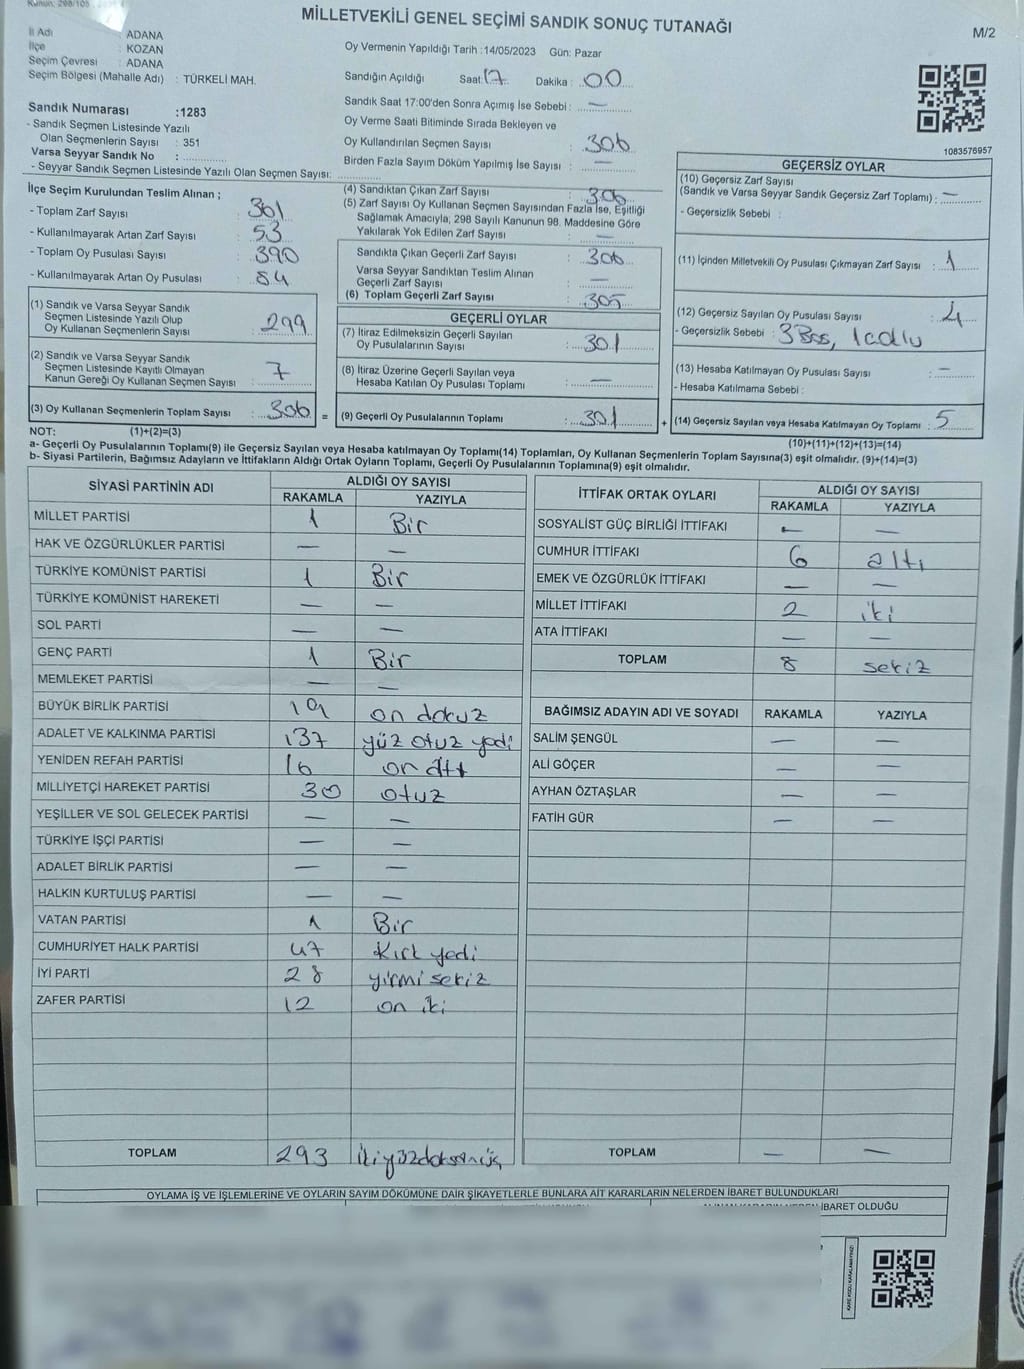 Kanun: 298/105
MİLLETVEKİLİ GENEL SEÇİMİ SANDIK SONUÇ TUTANAĞI
M/2
İl Adı : ADANA
İlçe : KOZAN
Seçim Çevresi : ADANA
Seçim Bölgesi (Mahalle Adı) : TÜRKELİ MAH.
Sandık Numarası :1283
- Sandık Seçmen Listesinde Yazılı
Olan Seçmenlerin Sayısı : 351
Varsa Seyyar Sandık No : ..............
- Seyyar Sandık Seçmen Listesinde Yazılı Olan Seçmen Sayısı: ..............
Oy Vermenin Yapıldığı Tarih :14/05/2023 Gün: Pazar
Sandığın Açıldığı Saat 17 Dakika : 00
Sandık Saat 17:00'den Sonra Açımış İse Sebebi : —
Oy Verme Saati Bitiminde Sırada Bekleyen ve
Oy Kullandırılan Seçmen Sayısı : 306
Birden Fazla Sayım Döküm Yapılmış İse Sayısı : —
1083576957
İlçe Seçim Kurulundan Teslim Alınan ;
- Toplam Zarf Sayısı : 361
- Kullanılmayarak Artan Zarf Sayısı : 53
- Toplam Oy Pusulası Sayısı : 390
- Kullanılmayarak Artan Oy Pusulası : 84
(1) Sandık ve Varsa Seyyar Sandık
Seçmen Listesinde Yazılı Olup
Oy Kullanan Seçmenlerin Sayısı : 299
(2) Sandık ve Varsa Seyyar Sandık
Seçmen Listesinde Kayıtlı Olmayan
Kanun Gereği Oy Kullanan Seçmen Sayısı : 7
(3) Oy Kullanan Seçmenlerin Toplam Sayısı : 306 =
(4) Sandıktan Çıkan Zarf Sayısı : 306
(5) Zarf Sayısı Oy Kullanan Seçmen Sayısından Fazla İse, Eşitliği
Sağlamak Amacıyla; 298 Sayılı Kanunun 98. Maddesine Göre
Yakılarak Yok Edilen Zarf Sayısı : —
Sandıkta Çıkan Geçerli Zarf Sayısı : 306
Varsa Seyyar Sandıktan Teslim Alınan
Geçerli Zarf Sayısı : —
(6) Toplam Geçerli Zarf Sayısı : 305
GEÇERLİ OYLAR
(7) İtiraz Edilmeksizin Geçerli Sayılan
Oy Pusulalarının Sayısı : 301
(8) İtiraz Üzerine Geçerli Sayılan veya
Hesaba Katılan Oy Pusulası Toplamı : —
(9) Geçerli Oy Pusulalarının Toplamı : 301 +
GEÇERSİZ OYLAR
(10) Geçersiz Zarf Sayısı
(Sandık ve Varsa Seyyar Sandık Geçersiz Zarf Toplamı) : —
- Geçersizlik Sebebi :
(11) İçinden Milletvekili Oy Pusulası Çıkmayan Zarf Sayısı : 1
(12) Geçersiz Sayılan Oy Pusulası Sayısı : 4
- Geçersizlik Sebebi : 3 Boş, 1
(13) Hesaba Katılmayan Oy Pusulası Sayısı : —
- Hesaba Katılmama Sebebi :
(14) Geçersiz Sayılan veya Hesaba Katılmayan Oy Toplamı : 5
NOT: (1)+(2)=(3) (10)+(11)+(12)+(13)=(14)
a- Geçerli Oy Pusulalarının Toplamı(9) ile Geçersiz Sayılan veya Hesaba katılmayan Oy Toplamı(14) Toplamları, Oy Kullanan Seçmenlerin Toplam Sayısına(3) eşit olmalıdır. (9)+(14)=(3)
b- Siyasi Partilerin, Bağımsız Adayların ve İttifakların Aldığı Ortak Oyların Toplamı, Geçerli Oy Pusulalarının Toplamına(9) eşit olmalıdır.
SİYASİ PARTİNİN ADI ALDIĞI OY SAYISI
RAKAMLA YAZIYLA
MİLLET PARTİSİ 1 Bir
HAK VE ÖZGÜRLÜKLER PARTİSİ — —
TÜRKİYE KOMÜNİST PARTİSİ 1 Bir
TÜRKİYE KOMÜNİST HAREKETİ — —
SOL PARTİ — —
GENÇ PARTİ 1 Bir
MEMLEKET PARTİSİ — —
BÜYÜK BİRLİK PARTİSİ 19 on dokuz
ADALET VE KALKINMA PARTİSİ 137 yüz otuz yedi
YENİDEN REFAH PARTİSİ 16 on altı
MİLLİYETÇİ HAREKET PARTİSİ 30 otuz
YEŞİLLER VE SOL GELECEK PARTİSİ — —
TÜRKİYE İŞÇİ PARTİSİ — —
ADALET BİRLİK PARTİSİ — —
HALKIN KURTULUŞ PARTİSİ — —
VATAN PARTİSİ 1 Bir
CUMHURİYET HALK PARTİSİ 47 Kırk yedi
İYİ PARTİ 28 yirmi sekiz
ZAFER PARTİSİ 12 on iki
TOPLAM 293 ikiyüzdoksanüç
İTTİFAK ORTAK OYLARI ALDIĞI OY SAYISI
RAKAMLA YAZIYLA
SOSYALİST GÜÇ BİRLİĞİ İTTİFAKI — —
CUMHUR İTTİFAKI 6 altı
EMEK VE ÖZGÜRLÜK İTTİFAKI — —
MİLLET İTTİFAKI 2 iki
ATA İTTİFAKI — —
TOPLAM 8 sekiz
BAĞIMSIZ ADAYIN ADI VE SOYADI RAKAMLA YAZIYLA
SALİM ŞENGÜL — —
ALİ GÖÇER — —
AYHAN ÖZTAŞLAR — —
FATİH GÜR — —
TOPLAM — —
OYLAMA İŞ VE İŞLEMLERİNE VE OYLARIN SAYIM DÖKÜMÜNE DAİR ŞİKAYETLERLE BUNLARA AİT KARARLARIN NELERDEN İBARET BULUNDUKLARI
İBARET OLDUĞU
KARE KODU KARALAMAYINIZ!